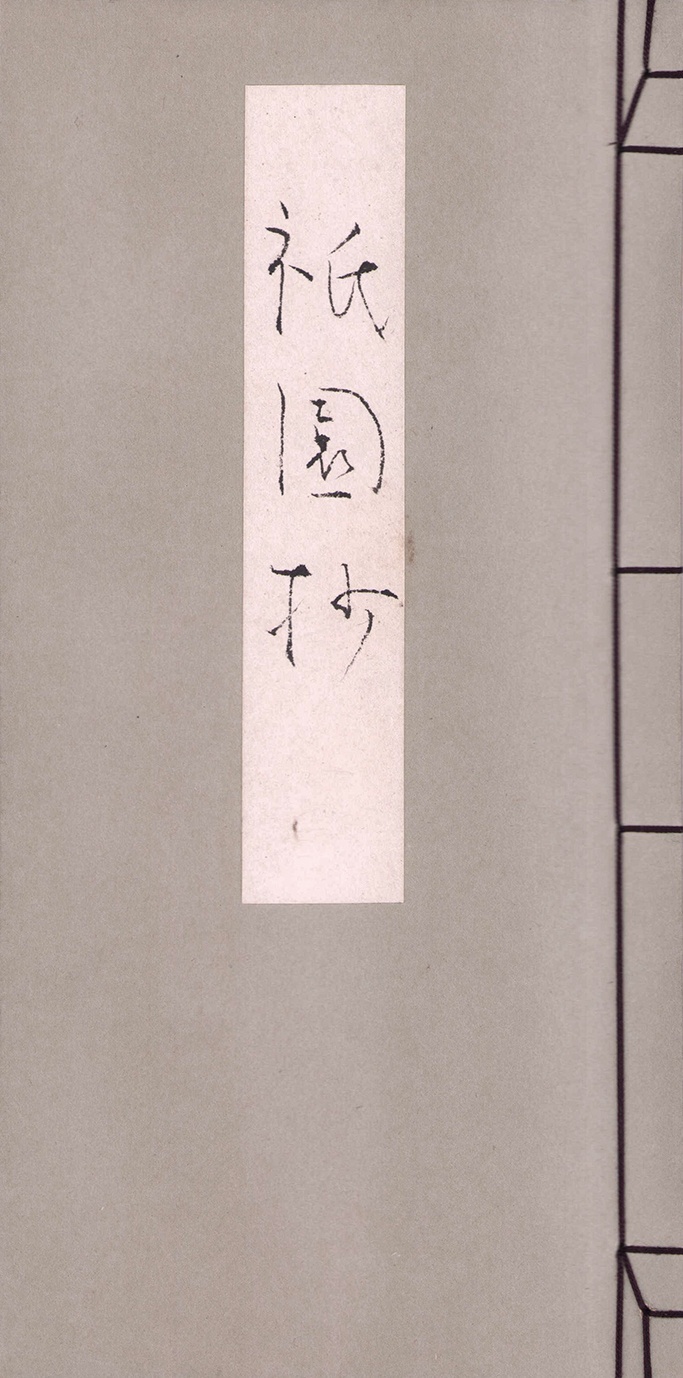 祇園抄